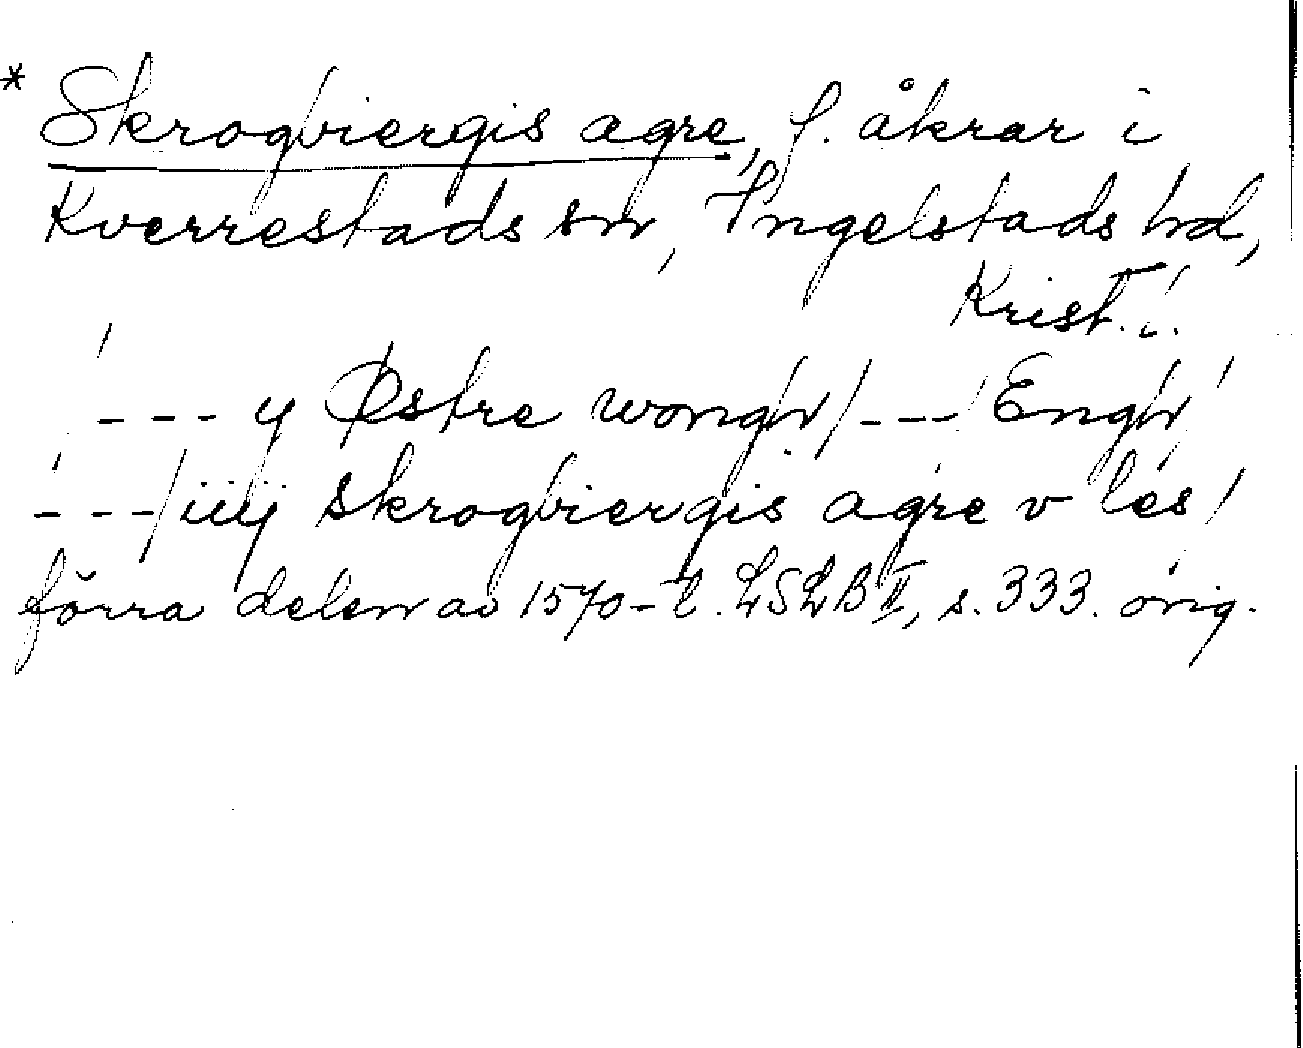 * Skrogbiergis agre, f. åkrar i
Kverrestads sn, Ingelstads hd,
Krist. l.
/ - - - y Østre wongh / - - - / Engh /
- - - / iiij skrogbiergis agre v les /
förra delen av 1570-t. LSLB II, s. 333. orig.